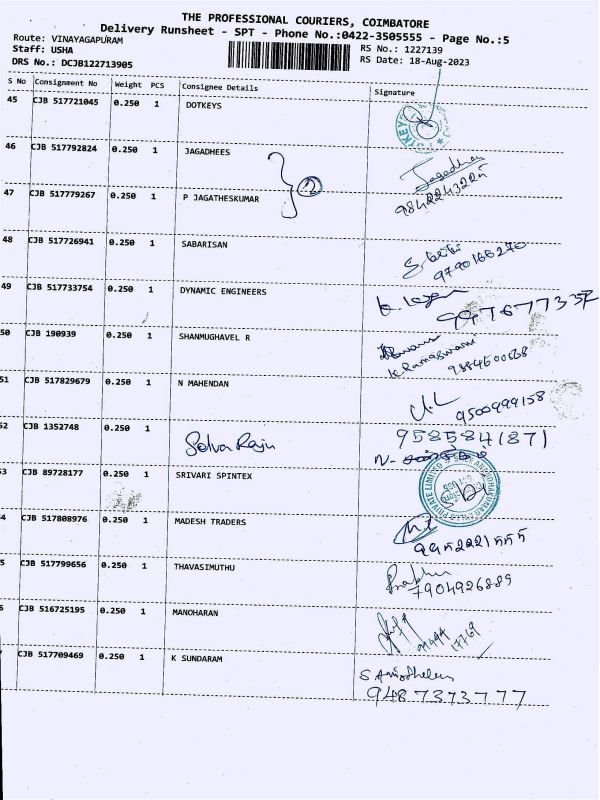 THE PROFESSIONAL COURIERS, COIMBATORE
Delivery Runsheet - SPT - Phone No.:0422-3505555 - Page No.:5
Route: VINAYAGAPURAM
Staff: USHA
RS No.: 1227139
DRS No.: DCJB122713905
RS Date: 18-Aug-2023
S No Consignment No Weight PCS Consignee Details Signature
45 CJB 517721045 0.250 1 DOTKEYS
46 CJB 517792824 0.250 1 JAGADHEES
47 CJB 517779267 0.250 1 P JAGATHESKUMAR
2
9842243225
48 CJB 517726941 0.250 1 SABARISAN
9790166270
49 CJB 517733754 0.250 1 DYNAMIC ENGINEERS
9976773357
50 CJB 190939 0.250 1 SHANMUGHAVEL R
K. Ramaswami
51 CJB 517829679 0.250 1 N MAHENDAN
9500999158
52 CJB 1352748 0.250 1 Selva Raju
958584(87)
53 CJB 89728177 0.250 1 SRIVARI SPINTEX
PRIVATE LIMITED
4 CJB 517808976 0.250 1 MADESH TRADERS
9952221555
5 CJB 517799656 0.250 1 THAVASIMUTHU
Prabhu
7904926889
6 CJB 516725195 0.250 1 MANOHARAN
CJB 517709469 0.250 1 K SUNDARAM
9487373777